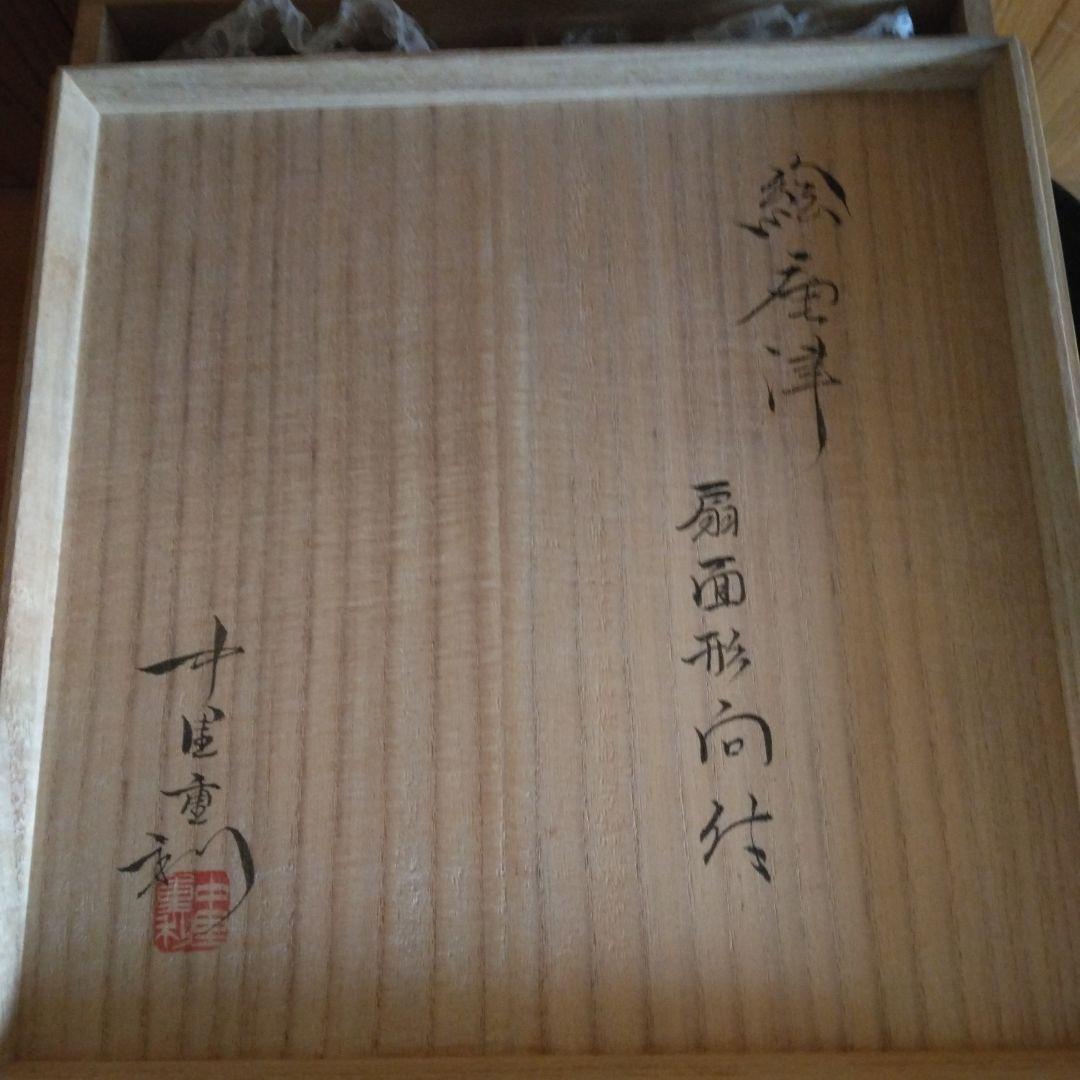 絵唐津
扇面形向付
十里重利
十里重利